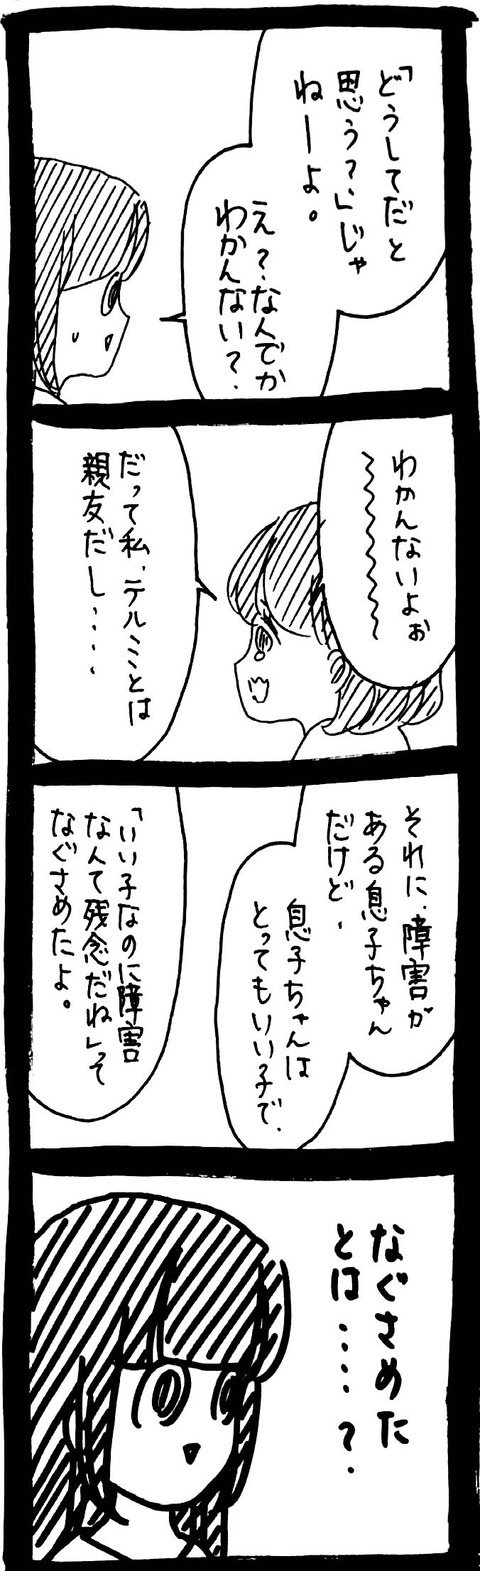 「どうしてだと
思う？」じゃ
ねーよ。
え？なんでか
わかんない？
わかんないよぉ
〜〜〜〜〜
だって私、テルミとは
親友だし‥‥
それに、障害が
ある息子ちゃん
だけど、
息子ちゃんは
とってもいい子で、
「いい子なのに障害
なんて残念だね」って
なぐさめたよ。
なぐさめた
とは‥‥？